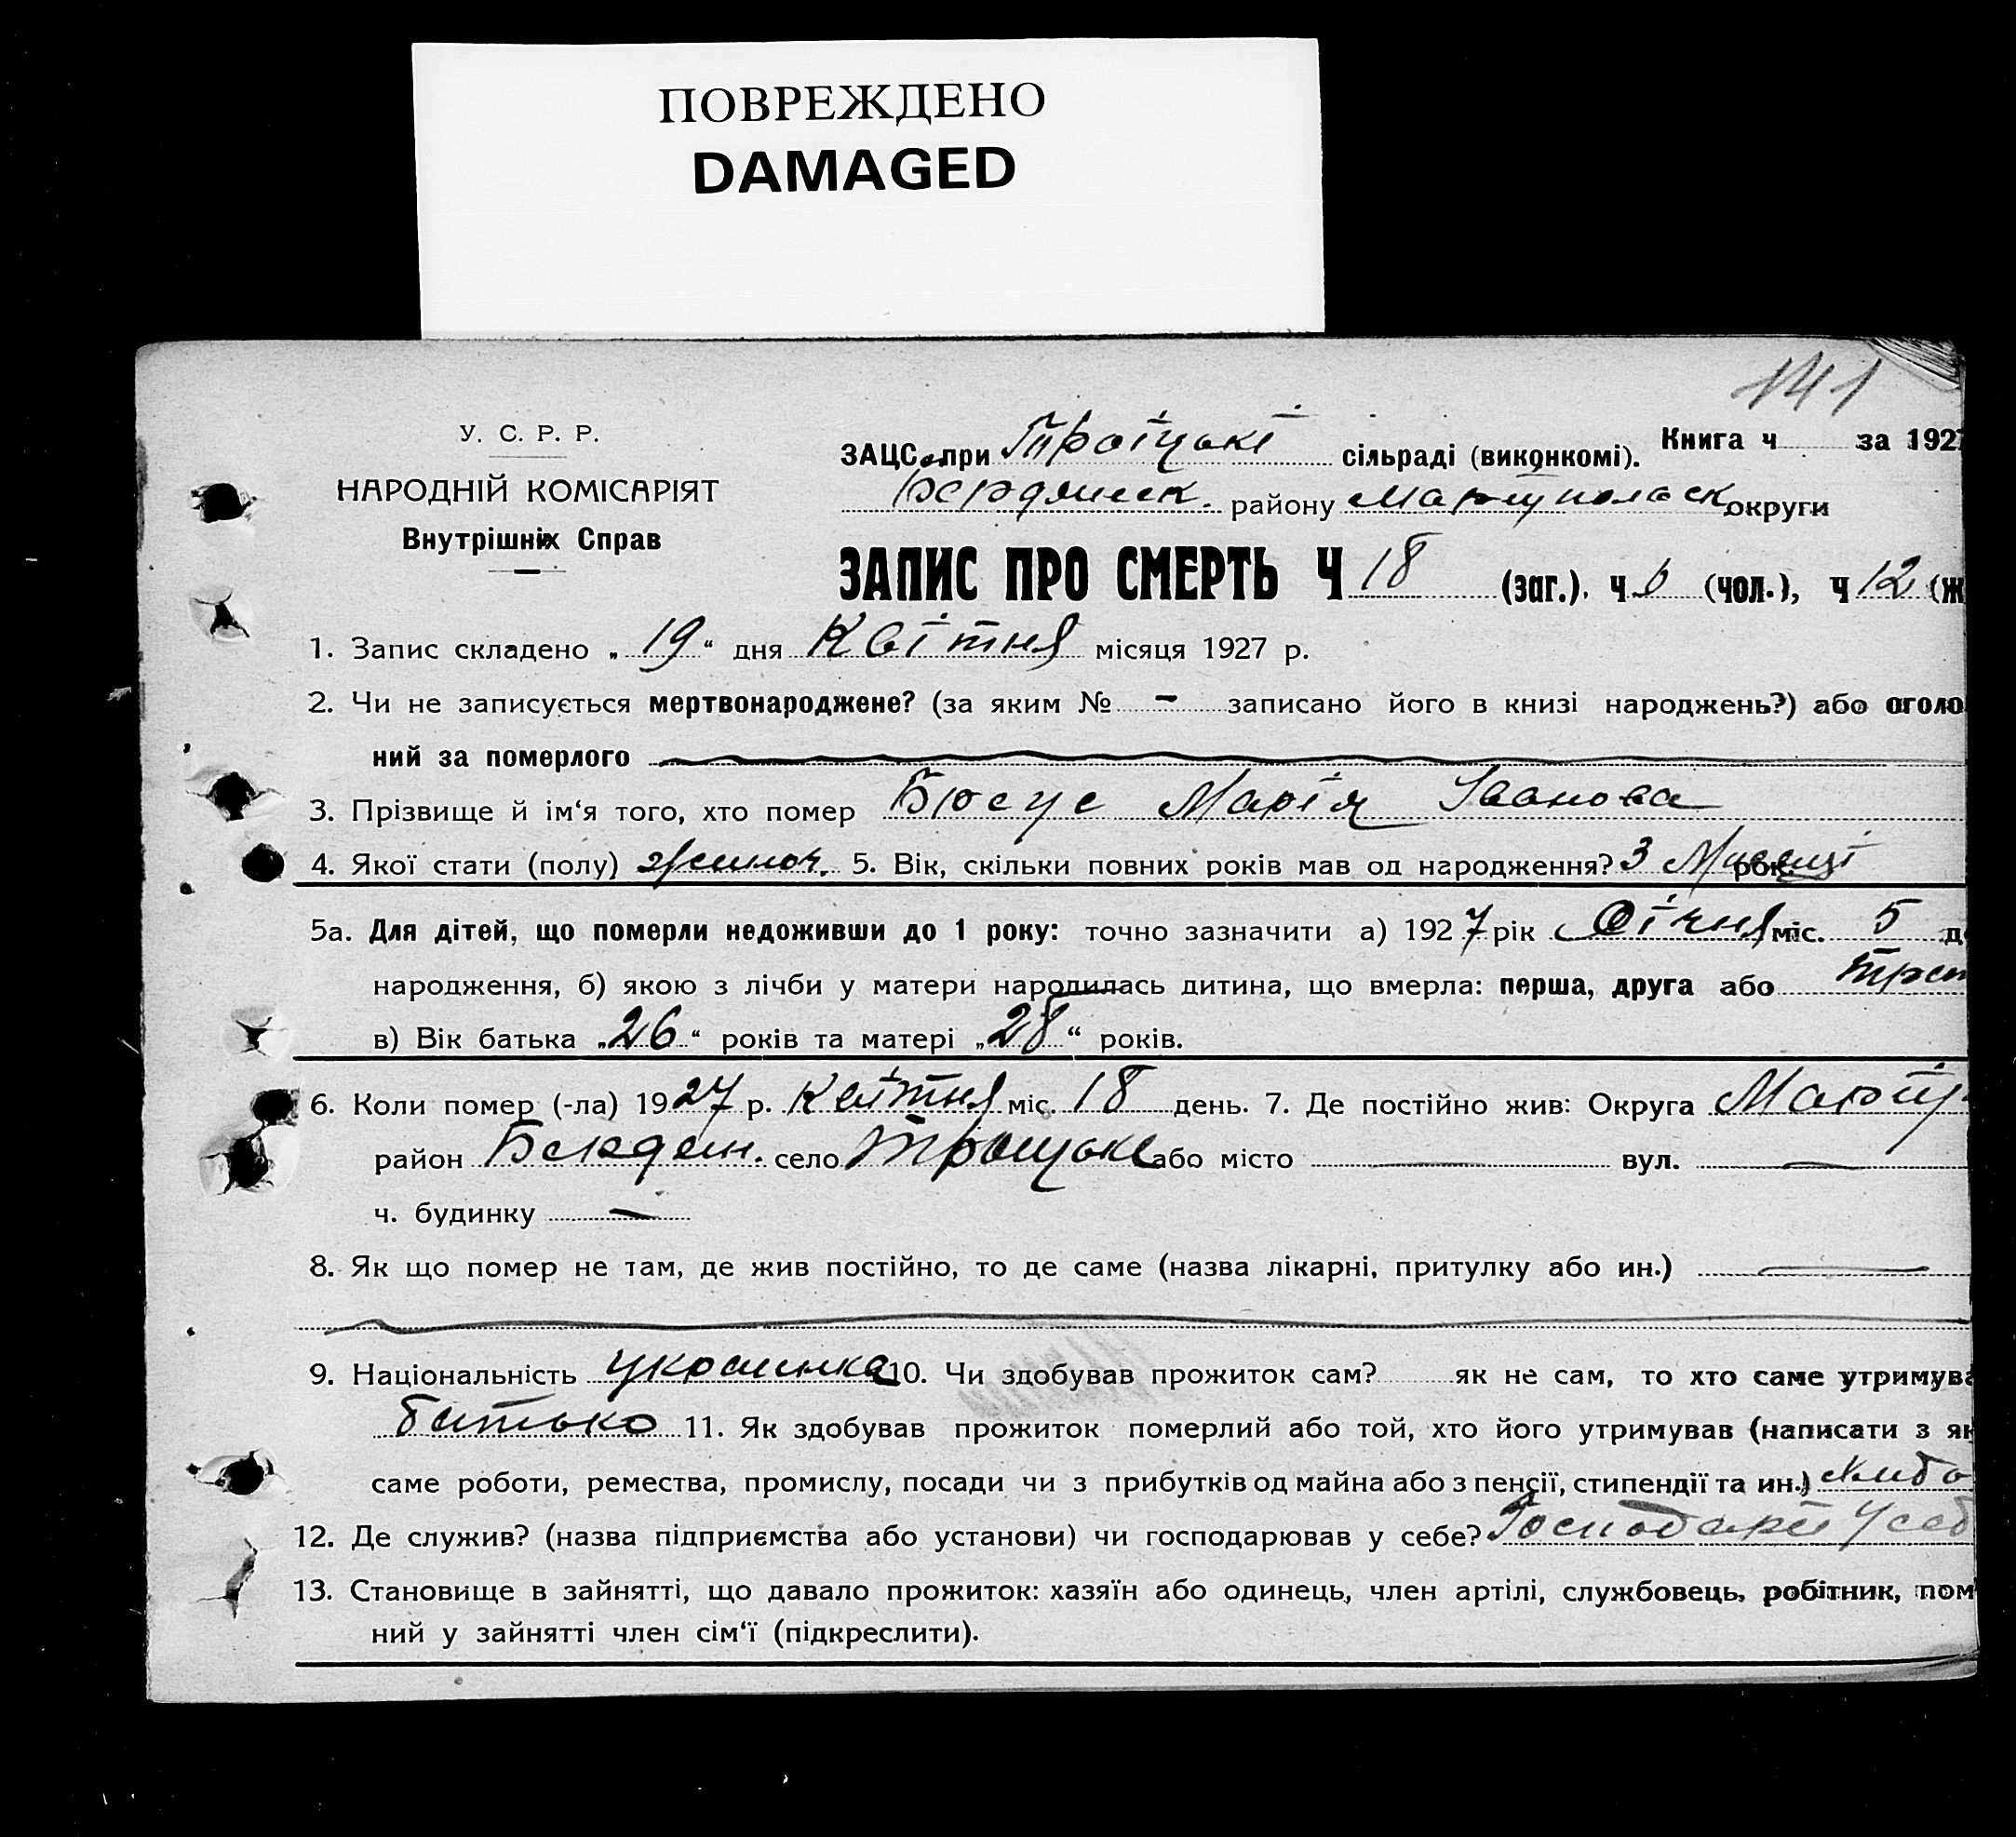 ПОВРЕЖДЕНО
DAMAGED
141
У. С. Р. Р.
НАРОДНІЙ КОМІСАРІЯТ
Внутрішніх Справ
ЗАЦС при Троїцькі сільраді (виконкомі). Книга ч за 1927
Бердянск. району Маріупольск округи
ЗАПИС ПРО СМЕРТЬ Ч 18 (заг.). ч 6 (чол.), ч 12 (ж
1. Запис складено „19“ дня Квітня місяця 1927 р.
2. Чи не записується мертвонароджене? (за яким № – записано його в книзі народжень?) або оголо
ний за померлого
3. Прізвище й ім‘я того, хто помер Бюсус Марія Іванова
4. Якої стати (полу) жиноч. 5. Вік, скільки повних років мав од народження? 3 Мисяці рок.
5а. Для дітей, що померли недоживши до 1 року: точно зазначити а) 1927 рік Січня міс. 5 д
народження, б) якою з лічби у матери народилась дитина, що вмерла: перша, друга або трет
в) Вік батька „26“ років та матері „28“ років.
6. Коли помер (-ла) 1927 р. Квітня міс. 18 день. 7. Де постійно жив: Округа Маріу.
район Бердян. село Троицьке або місто — вул. —
ч. будинку —
8. Як що помер не там, де жив постійно, то де саме (назва лікарні, притулку або ин.) —
9. Національність украинка 10. Чи здобував прожиток сам? як не сам, то хто саме утримува
батько 11. Як здобував прожиток померлий або той, хто його утримував (написати з як
саме роботи, ремества, промислу, посади чи з прибутків од майна або з пенсії, стипендії та ин.)
12. Де служив? (назва підприємства або установи) чи господарював у себе? Господарів У себ
13. Становище в зайнятті, що давало прожиток: хазяїн або одинець, член артілі, службовець, робітник, пом
ний у зайнятті член сім‘ї (підкреслити).